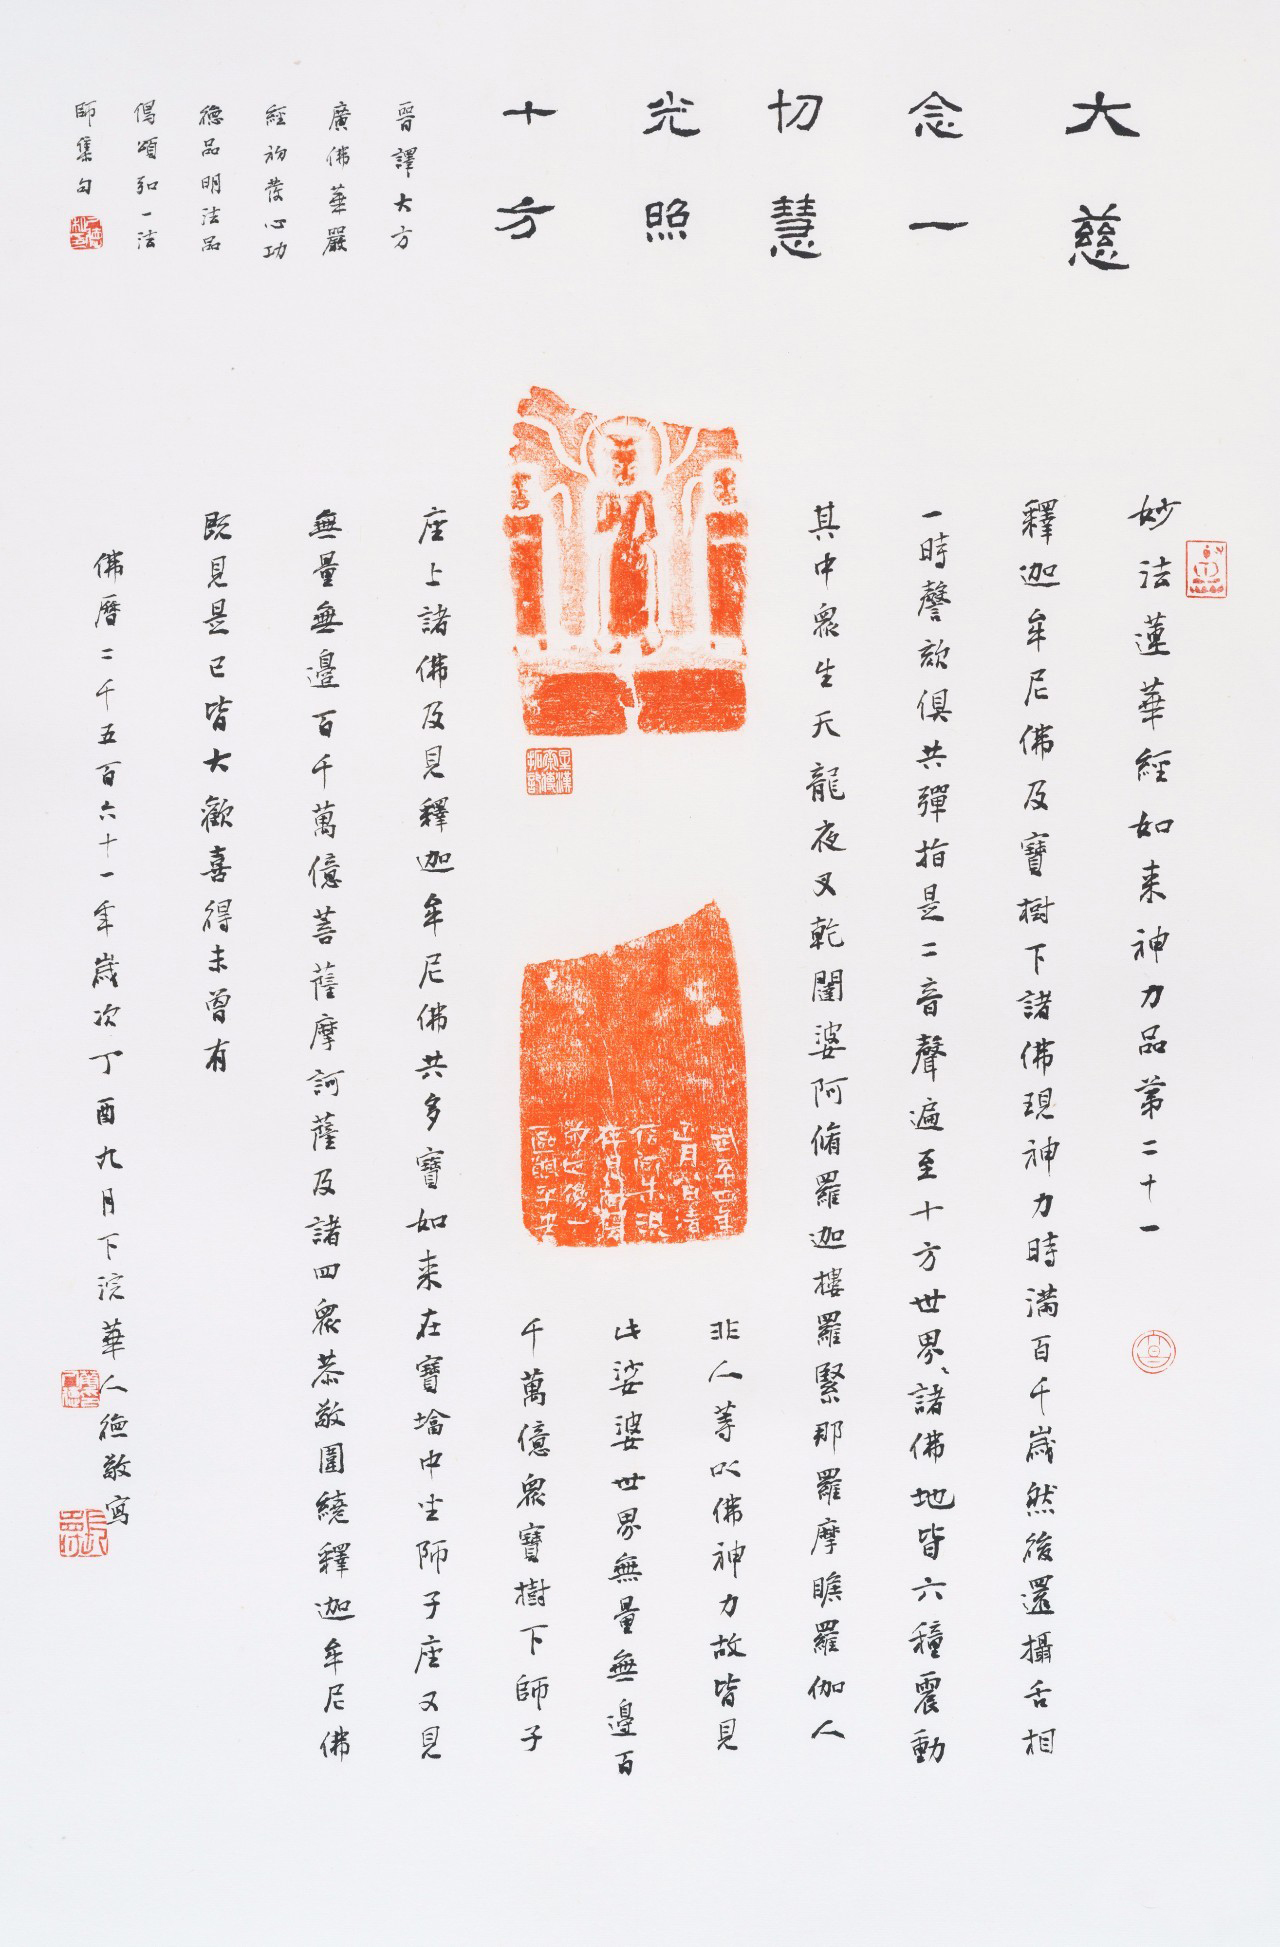 大慈
念一
切慧
光照
十方
晉譯大方
廣佛華嚴
經初發心功
德品明法品
偈頌弘一法
師集句
妙法蓮華經如来神力品第二十一
釋迦牟尼佛及寶樹下諸佛現神力時滿百千歲然後還攝舌相
一時謦欬俱共彈指是二音聲遍至十方世界諸佛地皆六種震動
其中眾生天龍夜叉乾闥婆阿脩羅迦樓羅緊那羅摩睺羅伽人
非人等以佛神力故皆見
此娑婆世界無量無邊百
千萬億眾寶樹下師子
座上諸佛及見釋迦牟尼佛共多寶如来在寶塔中坐師子座又見
無量無邊百千萬億菩薩摩訶薩及諸四眾恭敬圍繞釋迦牟尼佛
既見是已皆大歡喜得未曾有
佛曆二千五百六十一年歲次丁酉九月下浣華人德敬寫
武平四年
正月八日清
信
區願平安